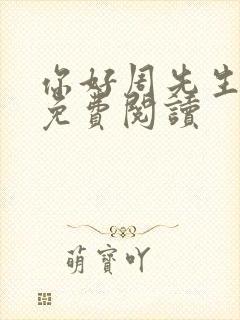 你好周先生
免費閱讀
萌寶吖